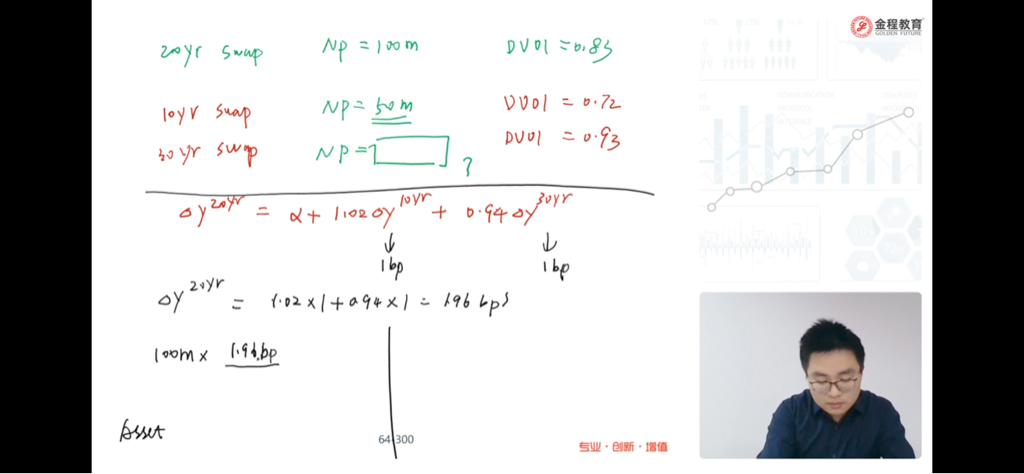 20yr swap NP = 100m DV01 = 0.83
金程教育
GOLDEN FUTURE
10yr swap NP = 50m DV01 = 0.72
30yr swap NP = ? DV01 = 0.93
Δy^20yr = α + 1.02Δy^10yr + 0.94Δy^30yr
↓ ↓
1bp 1bp
Δy^20yr = 1.02×1 + 0.94×1 = 1.96 bps
100m × 1.96bp
Asset
64/300
专业·创新·增值